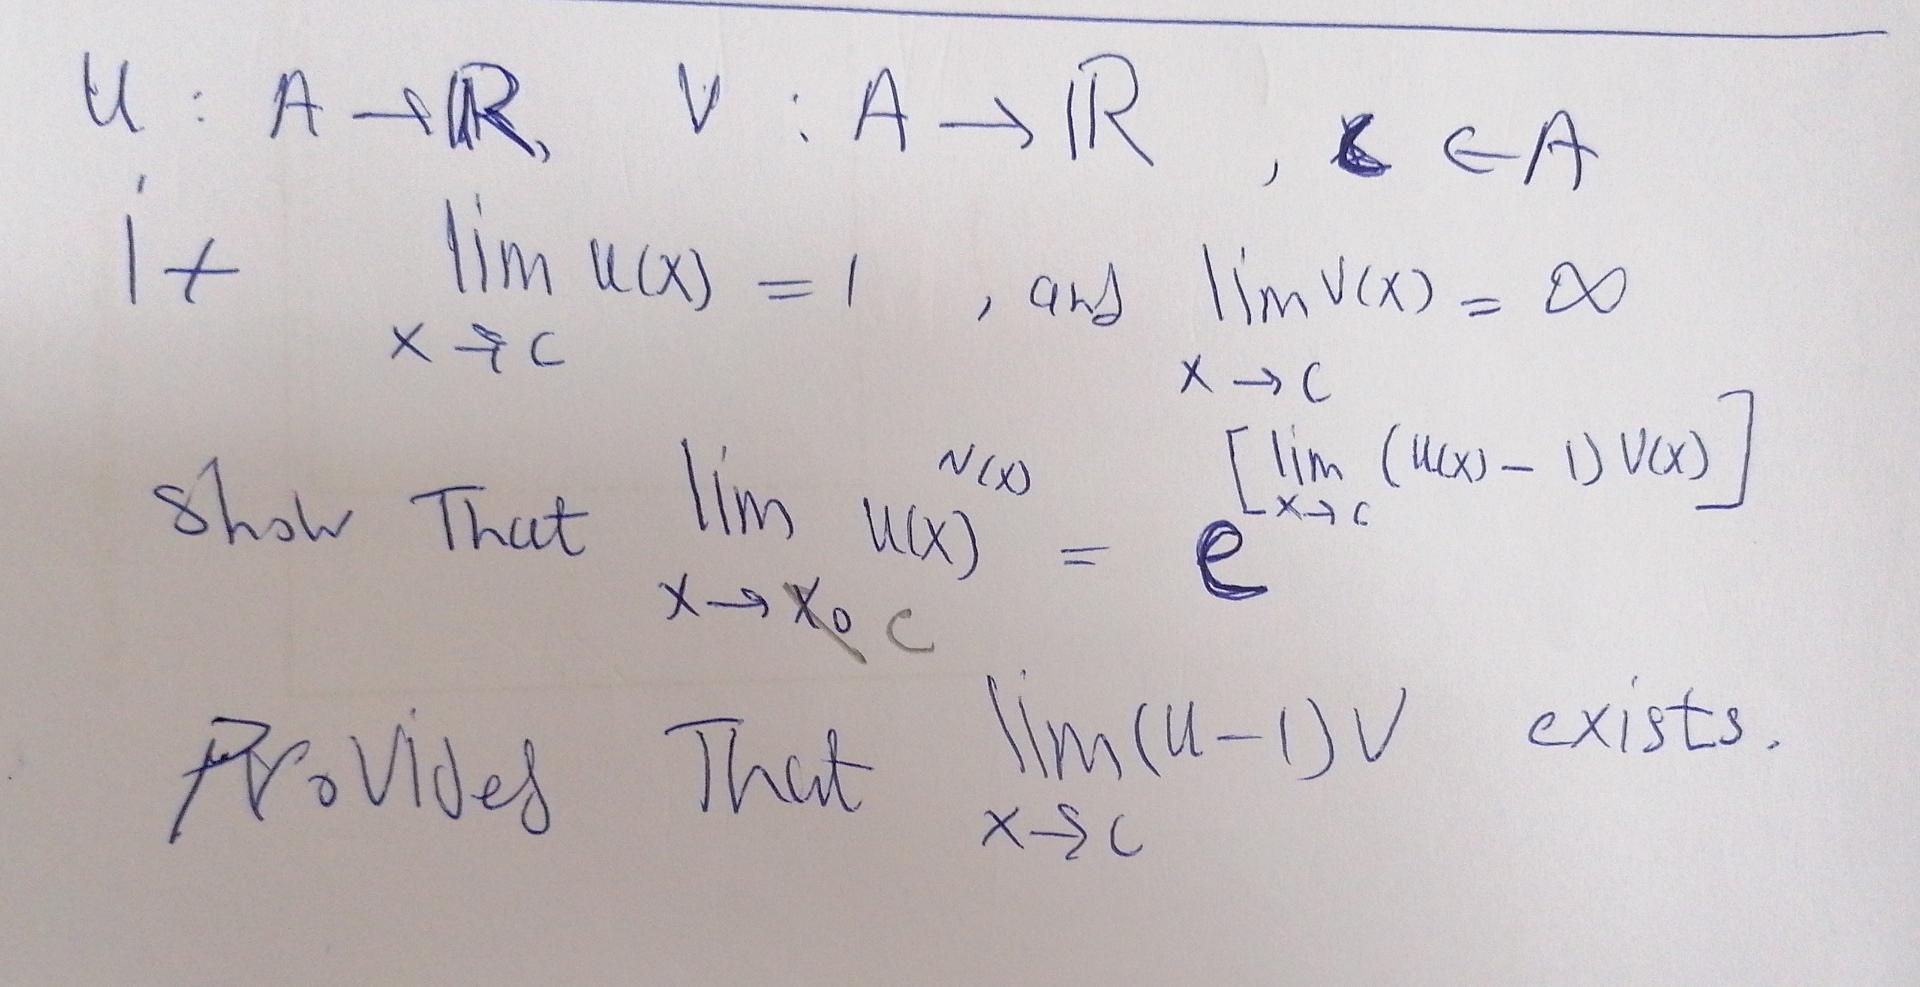 U : A → ℝ, V : A → ℝ , c ∈ A
if lim u(x) = 1 , and lim V(x) = ∞
x → c x → c
Show That lim u(x)^{v(x)} = e^{[lim_{x→c} (u(x) - 1) V(x)]}
x → c
Provided That lim (u - 1) V exists.
x → c